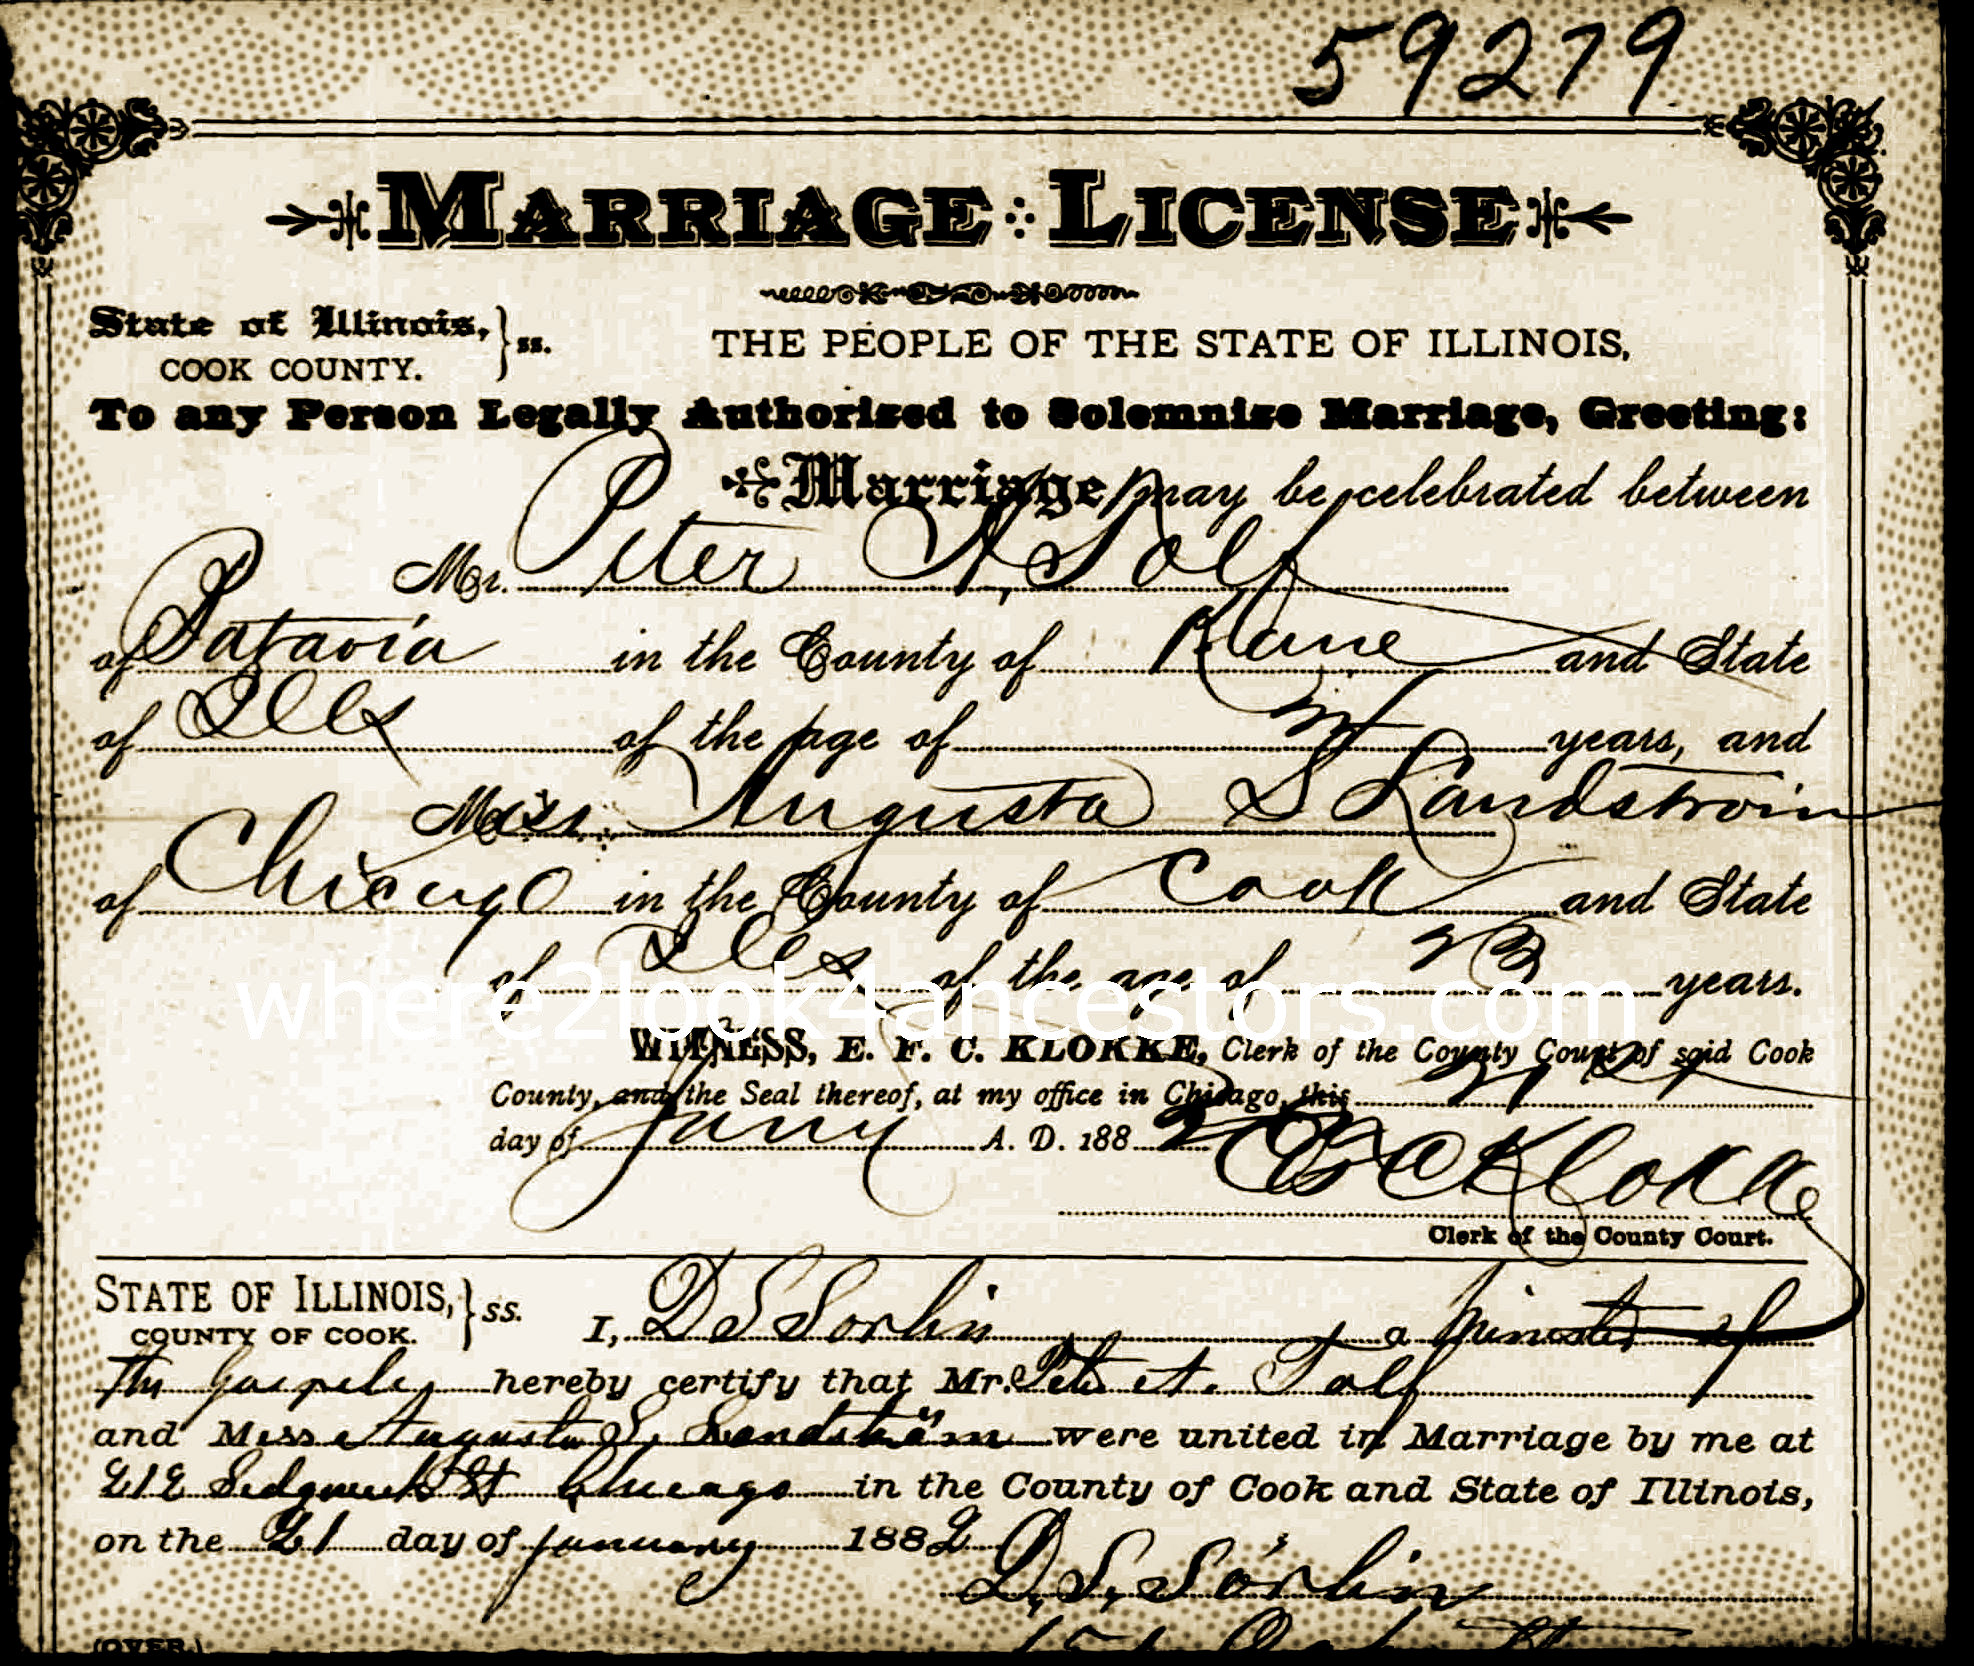 59279
MARRIAGE LICENSE
State of Illinois, } ss.
COOK COUNTY.
THE PEOPLE OF THE STATE OF ILLINOIS,
To any Person Legally Authorized to Solemnize Marriage, Greeting:
Marriage may be celebrated between
Mr. Peter A Tolf
of Batavia in the County of Kane and State
of Ills of the age of years, and
Miss Augusta S Sandstrom
of Chicago in the County of Cook and State
of Ills of the age of 23 years.
where2look4ancestors.com
WITNESS, E. F. C. KLOKKE, Clerk of the County Court of said Cook
County, and the Seal thereof, at my office in Chicago, this 21st
day of Jany A. D. 1882
E F C Klokke
Clerk of the County Court.
STATE OF ILLINOIS, } ss.
COUNTY OF COOK.
I, D S Sorlin a Minister of
The Gospel hereby certify that Mr. Peter A. Tolf
and Miss Augusta S. Sandström were united in Marriage by me at
212 Sedgwick St Chicago in the County of Cook and State of Illinois,
on the 21 day of January 1882
D. S. Sörlin
(OVER.)